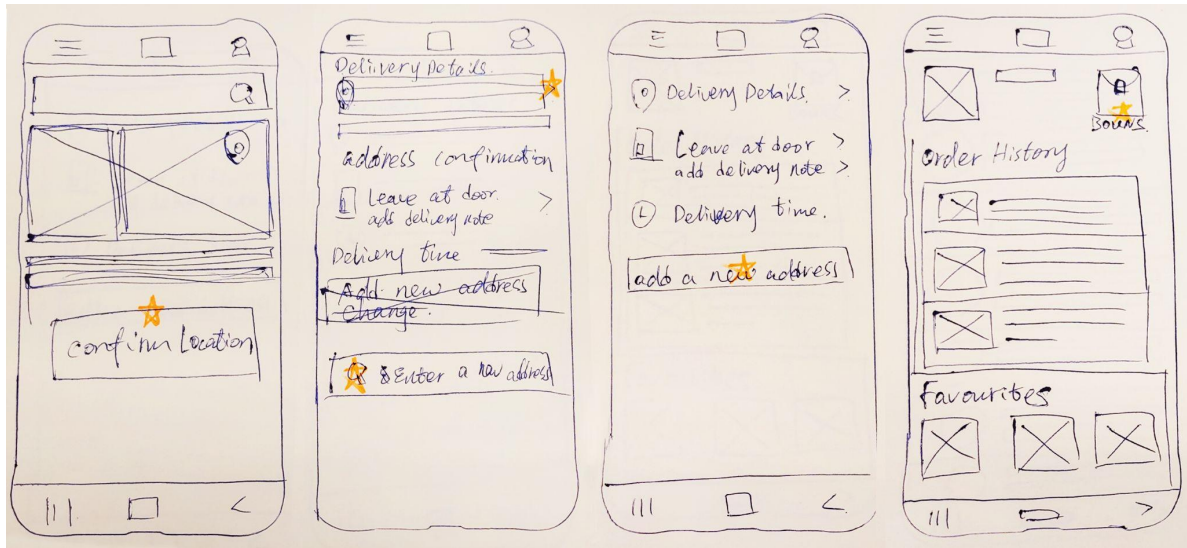 Confirm Location
Delivery Details.
address confirmation
Leave at door.
add delivery note
Delivery time
Add new address
Change.
Enter a new address
Delivery Details. >
Leave at door >
add delivery note >
Delivery time.
add a new address
BOUNS.
Order History
Favourites